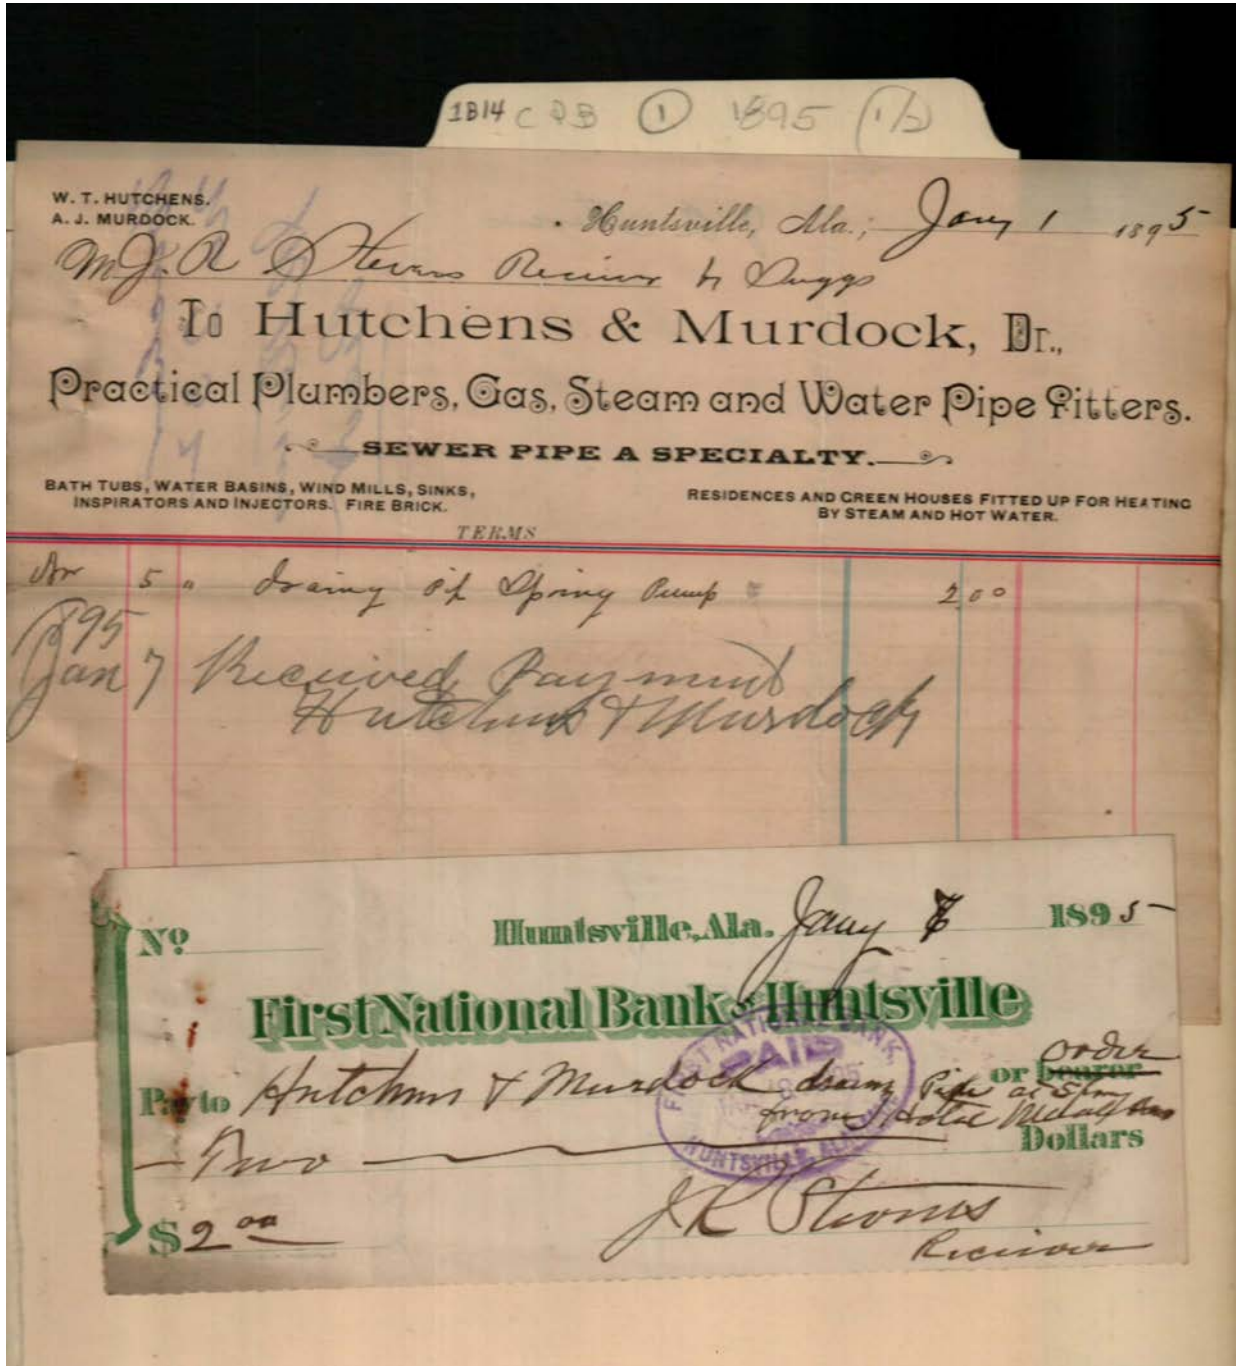 1B14 C 23 1 1895 (1/2)
W. T. HUTCHENS.
A. J. MURDOCK.
Huntsville, Ala.; Jany 1 1895
M J. R Stevens Receiver
To Hutchens & Murdock, Dr.,
Practical Plumbers, Gas, Steam and Water Pipe Fitters.
SEWER PIPE A SPECIALTY.
BATH TUBS, WATER BASINS, WIND MILLS, SINKS,
INSPIRATORS AND INJECTORS. FIRE BRICK.
RESIDENCES AND GREEN HOUSES FITTED UP FOR HEATING
BY STEAM AND HOT WATER.
TERMS
5 " Spring Pump 2 00
1895
Jan 7 Received Payment
Hutchens & Murdock
No Huntsville, Ala. Jany 7 1895
First National Bank of Huntsville
order
Pay to Hutchens & Murdock or bearer
from
Two Dollars
FIRST NATIONAL BANK
PAID
HUNTSVILLE, ALA
$2 00 J R Stevens
Receiver